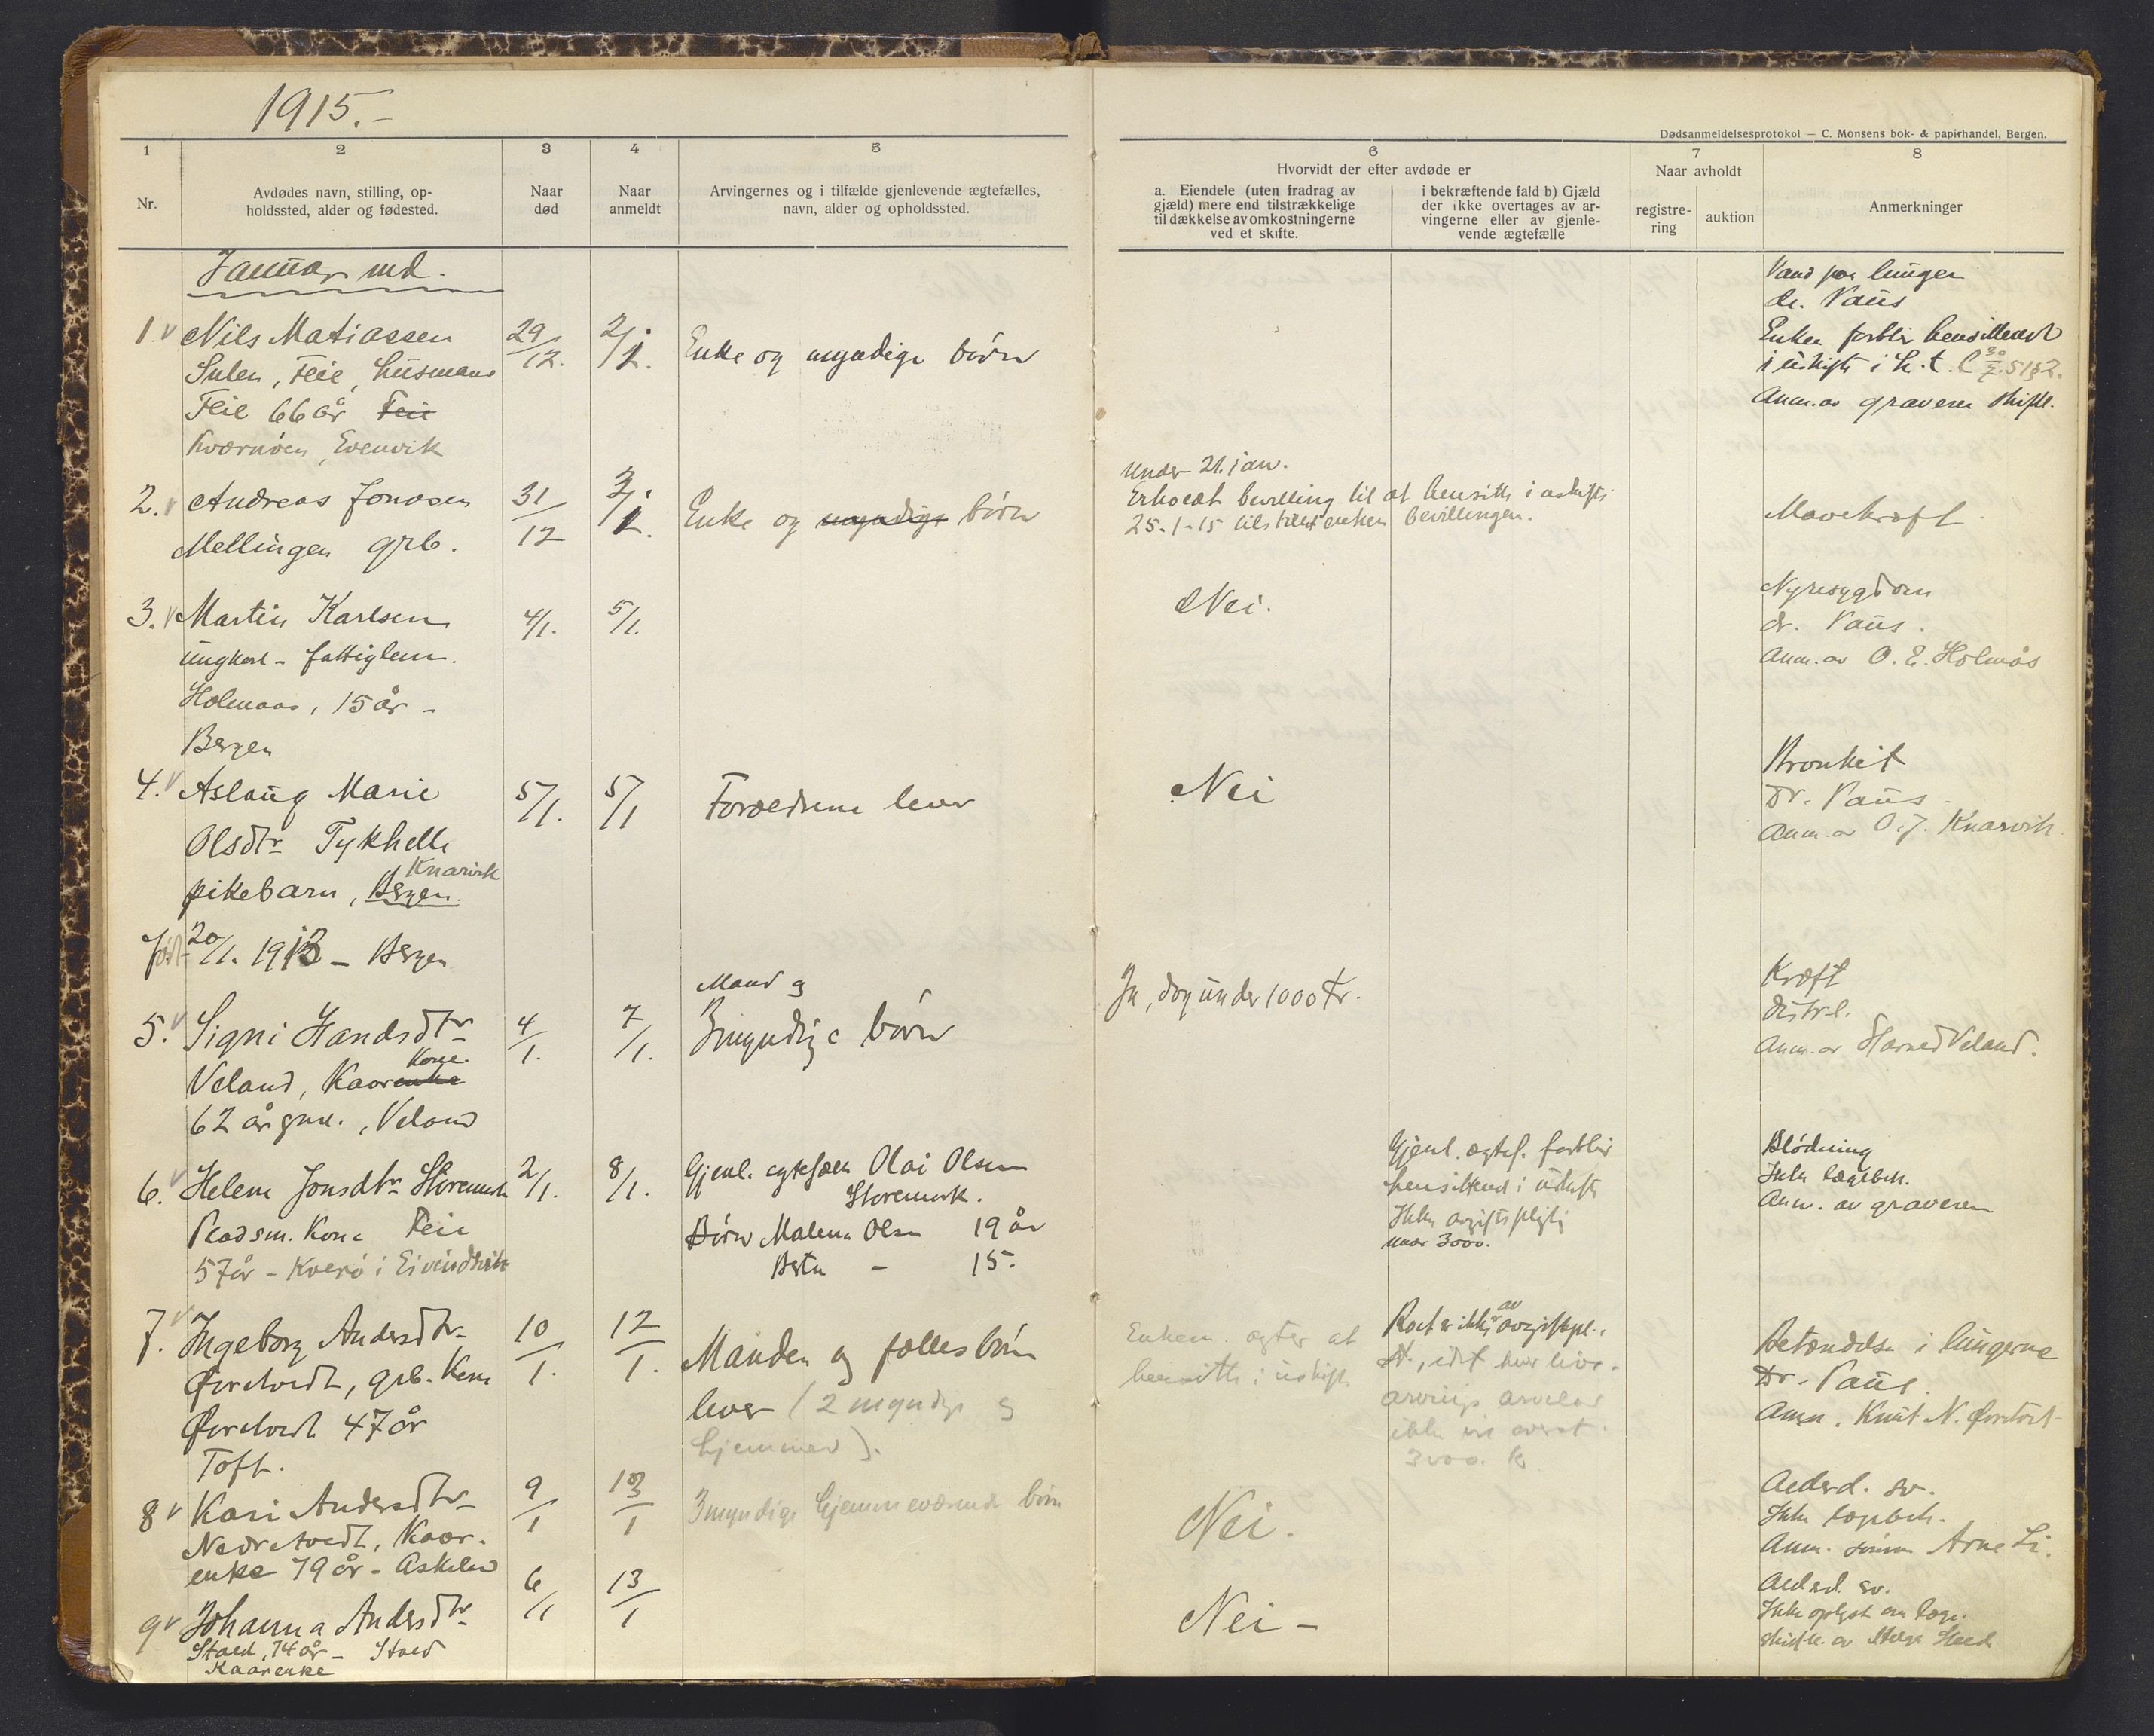 1915.-
Dødsanmeldelsesprotokol — C. Monsens bok- & papirhandel, Bergen.
1
2
3
4
5
6
7
8
Nr.
Avdødes navn, stilling, op-
holdssted, alder og fødested.
Naar
død
Naar
anmeldt
Arvingernes og i tilfælde gjenlevende ægtefælles,
navn, alder og opholdssted.
Hvorvidt der efter avdøde er
a. Eiendele (uten fradrag av
gjæld) mere end tilstrækkelige
til dækkelse av omkostningerne
ved et skifte.
i bekræftende fald b) Gjæld
der ikke overtages av ar-
vingerne eller av gjenle-
vende ægtefælle
Naar avholdt
registre-
ring
auktion
Anmerkninger
Januar md.
1. Nils Matiassen
Sulen, Feie, husmand
Feie 66 år Feie
Kværnøen, Evenvik
29/12.
2/1.
Enke og myndige børn
Vand paa lunger
dr. Paus
Enken forblir hensittende
i uskifte i h. t.
Anm. av graveren
2. Andreas Jonasen
Mellingen grb.
31/12
2/1.
Enke og myndige børn
Under 21. jan.
Erholdt bevilling til at hensitte i uskifte
25-1-15 tilstillet enken bevillingen.
Mavekræft
3. Martin Karlsen
ungkarl - fattiglem.
Holmaas, 15 år -
Bergen
4/1.
5/1.
Nei.
Nyresygdom
dr. Paus.
Anm. av O. E. Holmås
4. Aslaug Marie
Olsdtr Tykhelle
Knarvik
pikebarn, Bergen.
født 20/1. 1913 - Bergen
5/1.
5/1
Forældrene lever
Nei
Bronkit
Dr. Paus.
Anm. av O. J. Knarvik
5. Signi Handsdtr
Kone.
Veland, Kaarenke
62 år gml., Veland
4/1.
7/1.
Mand og
3 myndige børn
Ja, dog under 1000 kr.
Kræft
distr.l.
Anm. av Veland.
6. Helene Jonsdtr Storemark
Pladsm. Kone Feie
57 år - Kverø i Eivindvik
2/1.
8/1.
Gjenl. egtefælle Olai Olsen
Storemark.
Børn Malene Olsen 19 år
Berta - 15.
Gjenl. ægtef. forblir
hensittend i uskifte
Ikke avgiftspligtig
3000.
Blødning
Ikke lægebeh.
Anm. av graveren
7. Ingeborg Andersdtr
Øvretvedt, grb. Kone
Øvretvedt 47 år
Toft.
10/1.
12/1.
Manden og fælles børn
lever (2 myndige og
hjemmev).
Enken agter at
hensitte i uskifte
ikke
3000. kr
Betændelse i lungerne
Dr. Paus.
Anm. Knut N. Øvretvet
8 Kari Andersdtr
Nedretvedt, Kaar-
enke 79 år - Askeland
9/1
13/1
3 myndige hjemmeværende børn
Nei.
Alderd. sv.
Ikke lægebeh.
Anm. sønnen Arne Li.
9 Johanna Andersdtr
Staed, 74 år - Staed
Kaarenke
6/1
13/1
Nei -
Alderd. sv.
Ikke oplyst om læge.